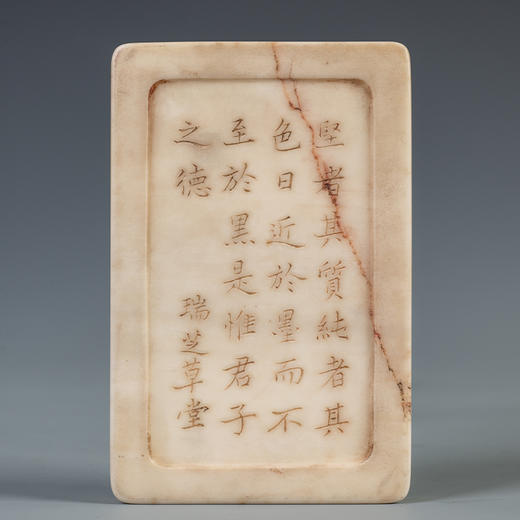 堅者其質純者其
色日近於墨而不
至於黑是惟君子
之德
瑞芝草堂